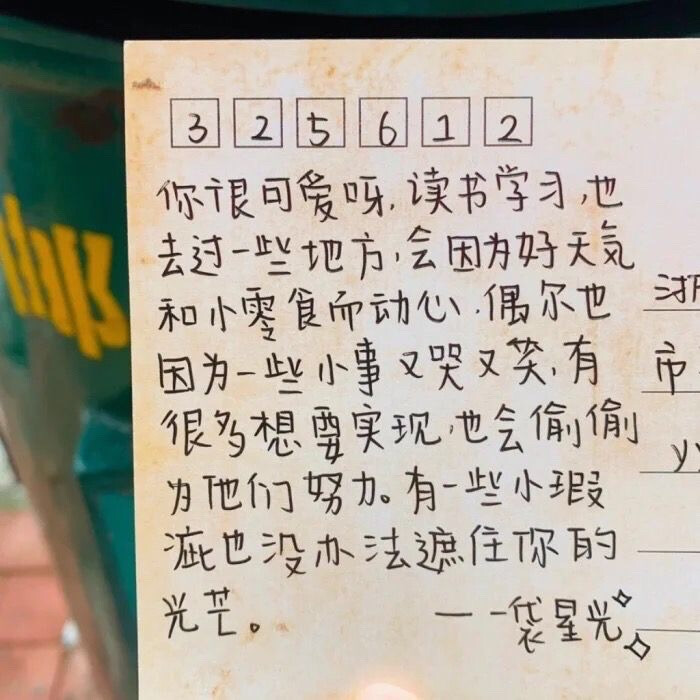 325612
你很可爱呀,读书学习,也
去过一些地方,会因为好天气
和小零食而动心,偶尔也
因为一些小事又哭又笑,有
很多想要实现,也会偷偷
为他们努力。有一些小瑕
疵也没办法遮住你的
光芒。 ——袋星光
市